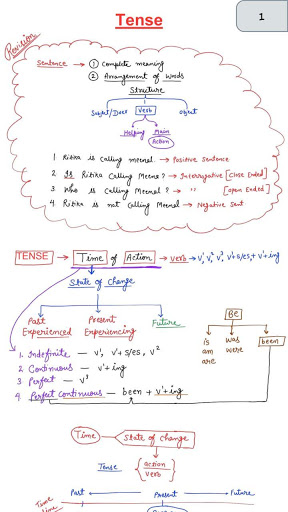 Tense
1
Revision
Sentence → ① Complete meaning
② Arrangement of words
Structure
Subject/Doer Verb object
Helping Main
Action
1 Ritika is calling meenal → Positive Sentence
2 Is Ritika Calling Meena? → Interrogative [Close Ended]
3 Who is Calling Meenal? → " [open Ended]
4 Ritika is not Calling Meenal → Negative Sent
TENSE → Time of Action → verb → v¹, v², v³, v¹+s/es, v¹+ing
State of Change
Past Present Future
Experienced Experiencing
Be
is was been
am were
are
1. Indefinite – v¹, v¹+s/es, v²
2 Continuous – v¹+ing
3 Perfect – v³
4 Perfect continuous – been + v¹+ing
Time → State of change
Tense { action verb }
Past ← Present → Future
Time